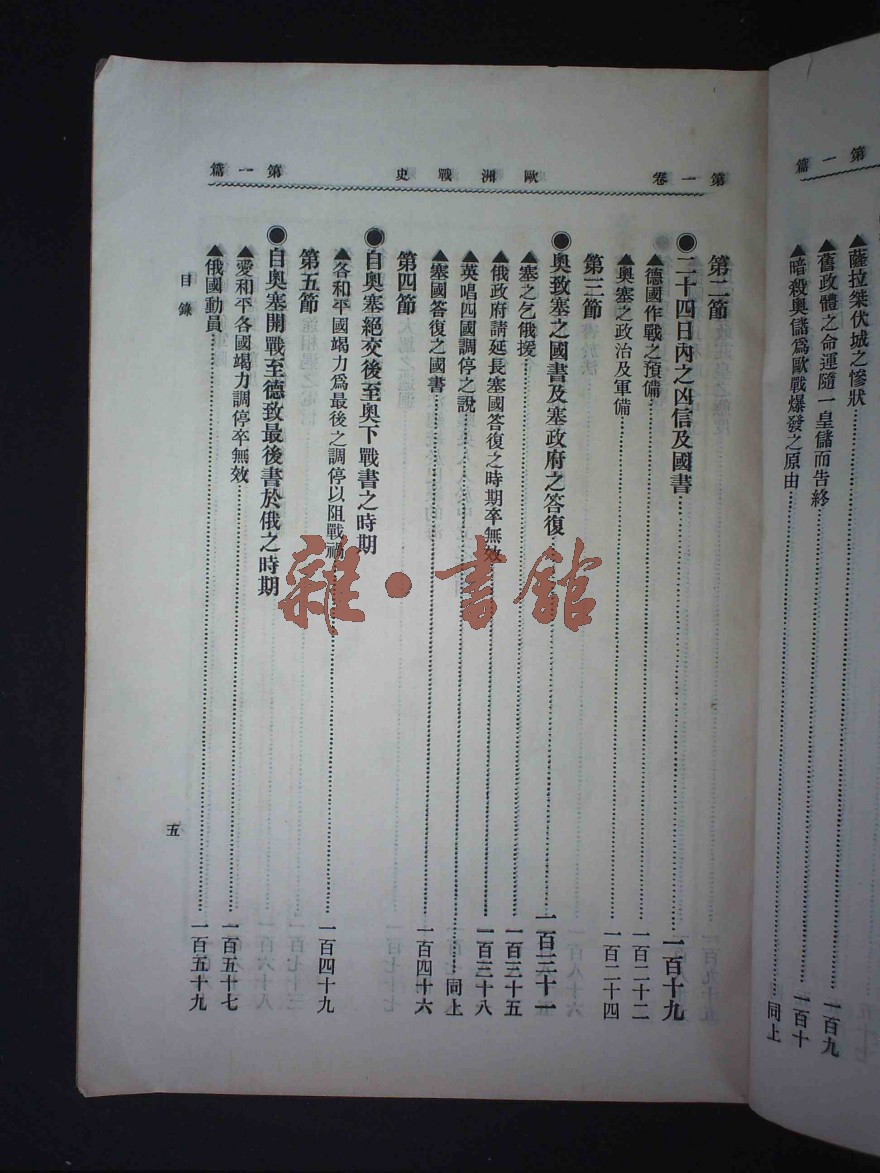 第一篇
薩拉桀伏城之慘狀
舊政體之命運隨一皇儲而告終……一百九
暗殺奧儲爲歐戰爆發之原由……一百十
同上
第一卷 歐洲戰史 第一篇
第二節
●二十四日內之凶信及國書……一百十九
▲德國作戰之預備……一百二十二
▲奧塞之政治及軍備……一百二十四
第三節
●奧致塞之國書及塞政府之答復……一百三十一
▲塞之乞俄援……一百三十五
▲俄政府請延長塞國答復之時期卒無效……一百三十八
▲英唱四國調停之說……同上
▲塞國答復之國書……一百四十六
第四節
●自奧塞絕交後至奧下戰書之時期
▲各和平國竭力爲最後之調停以阻戰禍……一百四十九
第五節
●自奧塞開戰至德致最後書於俄之時期
▲愛和平各國竭力調停卒無效……一百五十七
▲俄國動員……一百五十九
目錄
五
雜·書館